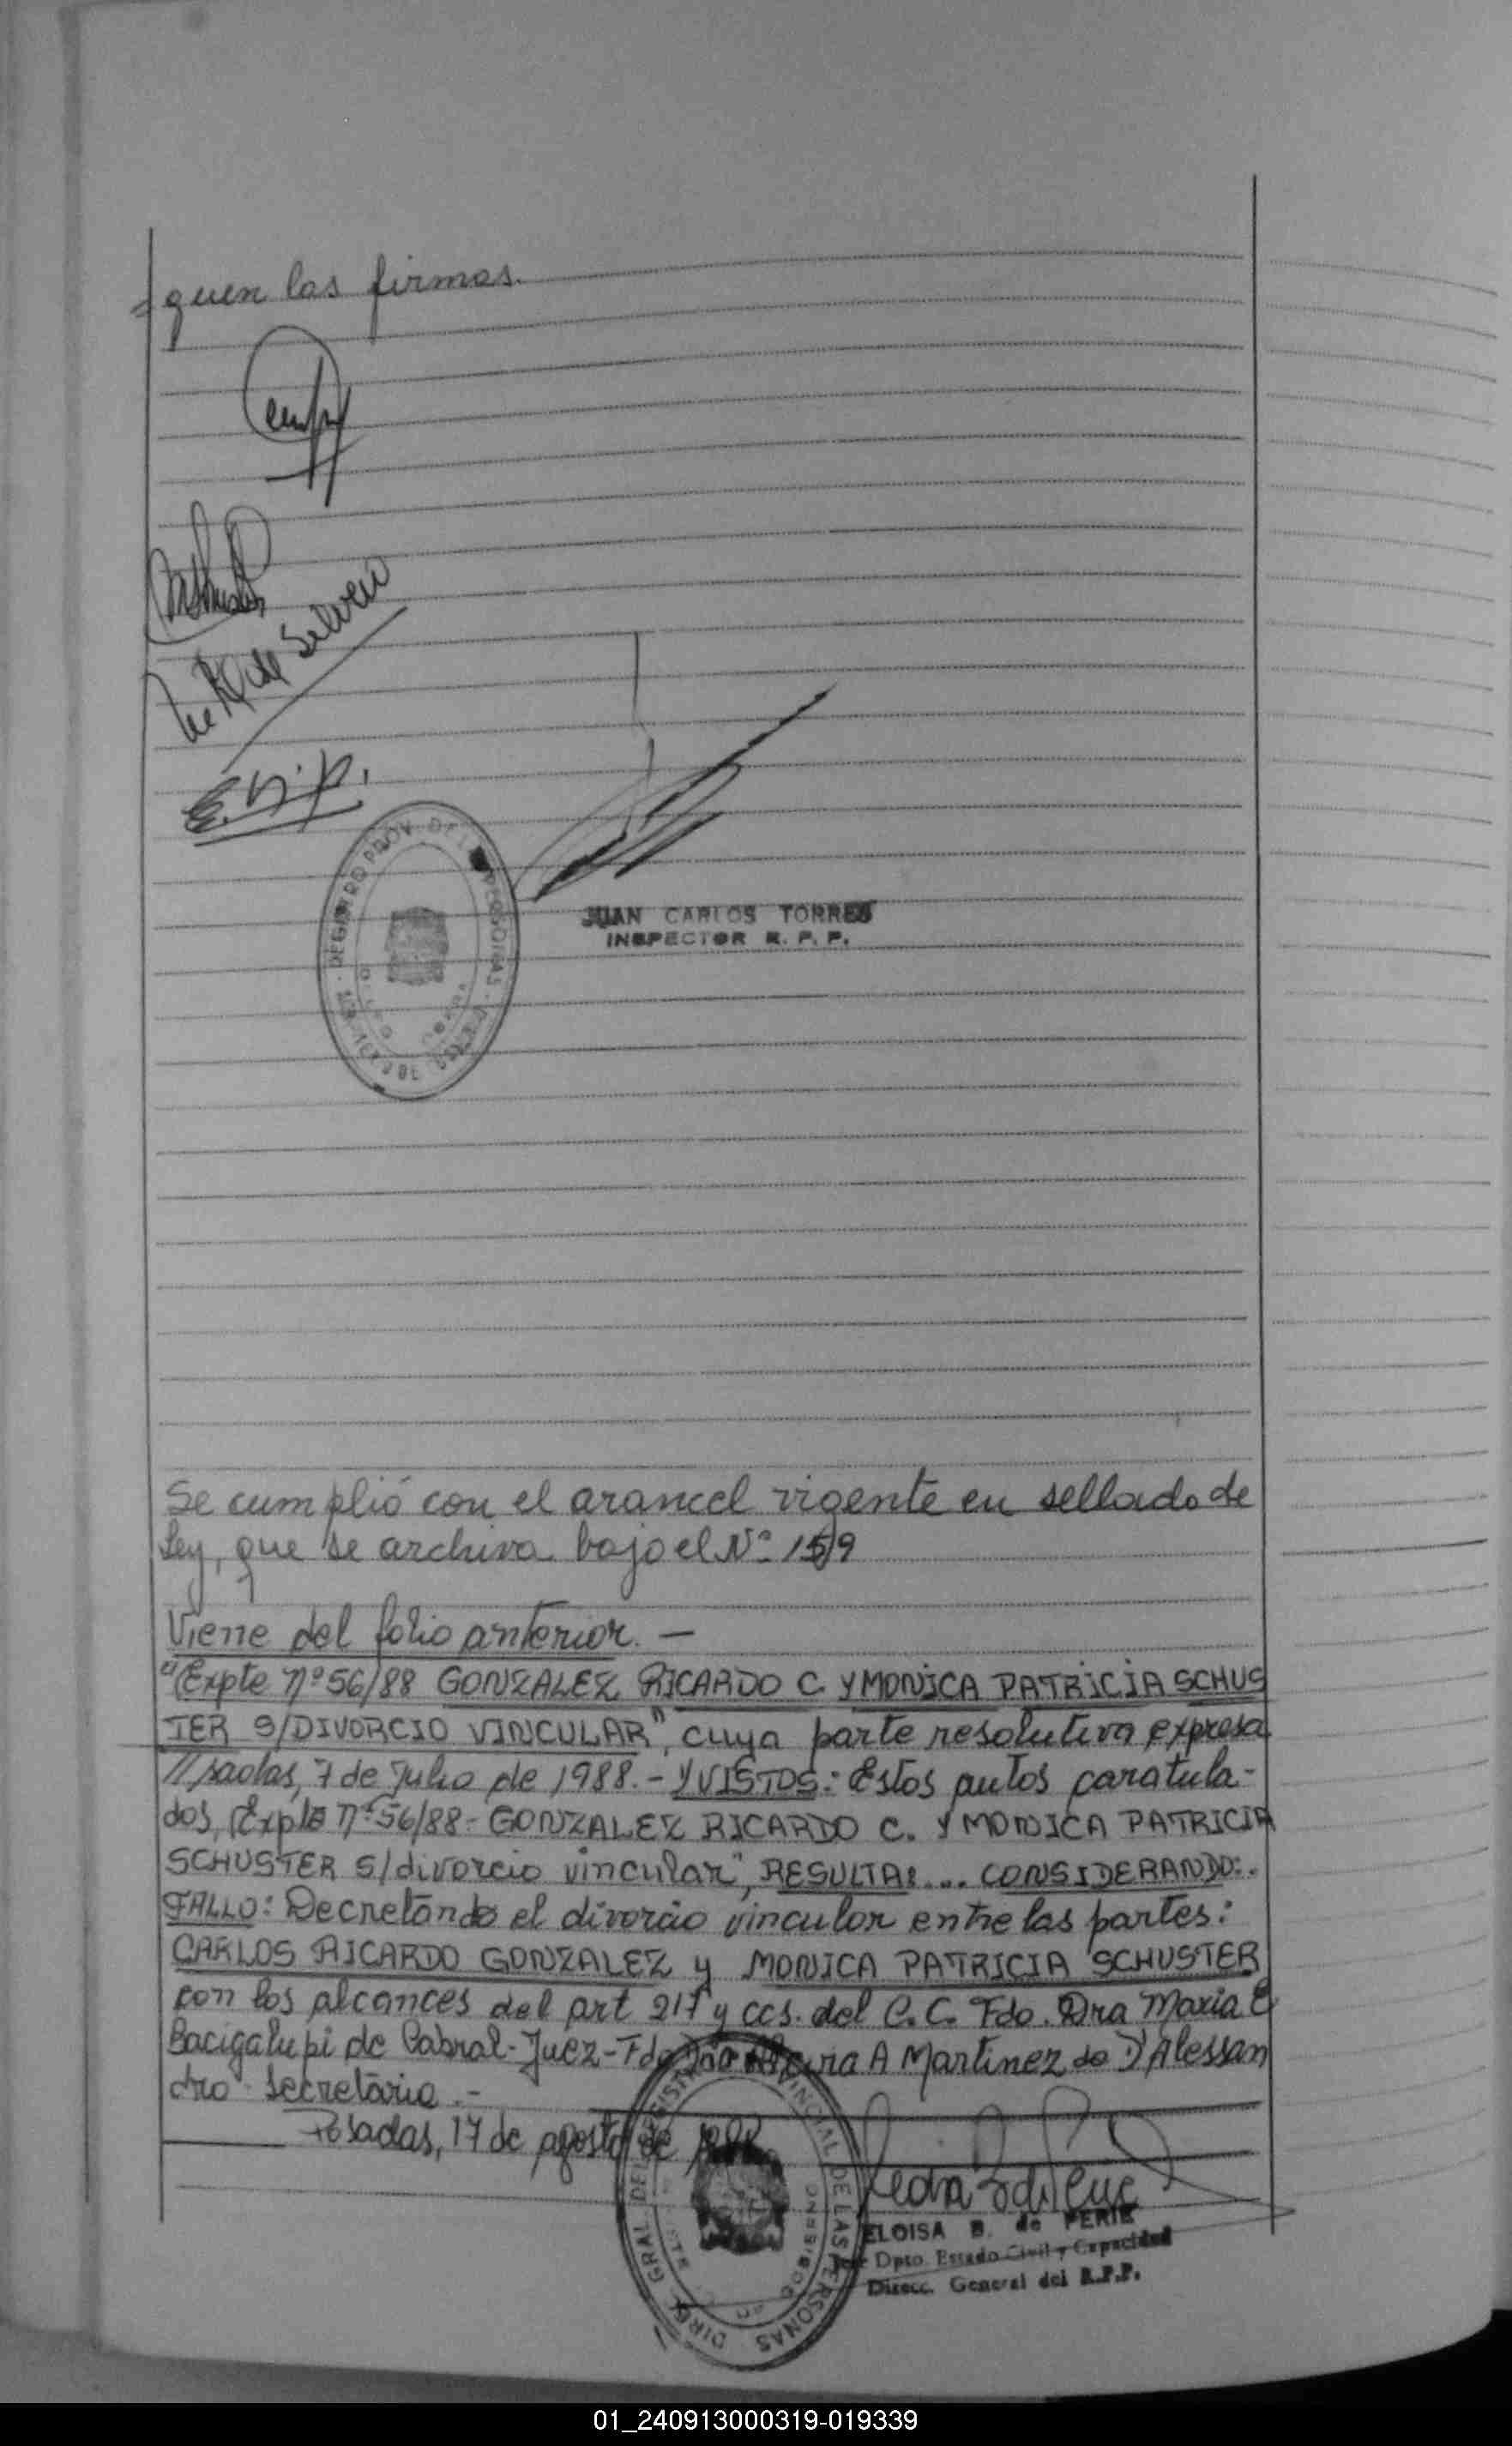 =guen las firmas.
de Silvero
JUAN CARLOS TORRES
INSPECTOR R. P. P.
Se cumplió con el arancel vigente en sellado de
Ley, que se archiva bajo el Nº 159
Viene del folio anterior. —
"Expte nº 56/88 GONZALEZ RICARDO C. Y MONICA PATRICIA SCHUS
TER S/DIVORCIO VINCULAR", cuya parte resolutiva expresa
//sadas, 7 de Julio de 1988.- Y VISTOS: Estos autos caratula-
dos, Expte nº 56/88- GONZALEZ RICARDO C. Y MONICA PATRICIA
SCHUSTER S/divorcio vincular", RESULTA:... CONSIDERANDO:.
FALLO: Decretando el divorcio vincular entre las partes:
CARLOS RICARDO GONZALEZ y MONICA PATRICIA SCHUSTER
con los alcances del art 217 y ccs. del C.C. Fdo. Dra Maria E
Bacigalupi de Cabral- Juez- Fdo A Martinez de D'Alessan
dro- Secretaria.-
Posadas, 17 de agosto de
ELOISA B. de PERIE
Jefe Dpto. Estado Civil y Capacidad
Direcc. General del R.P.P.
01_240913000319-019339